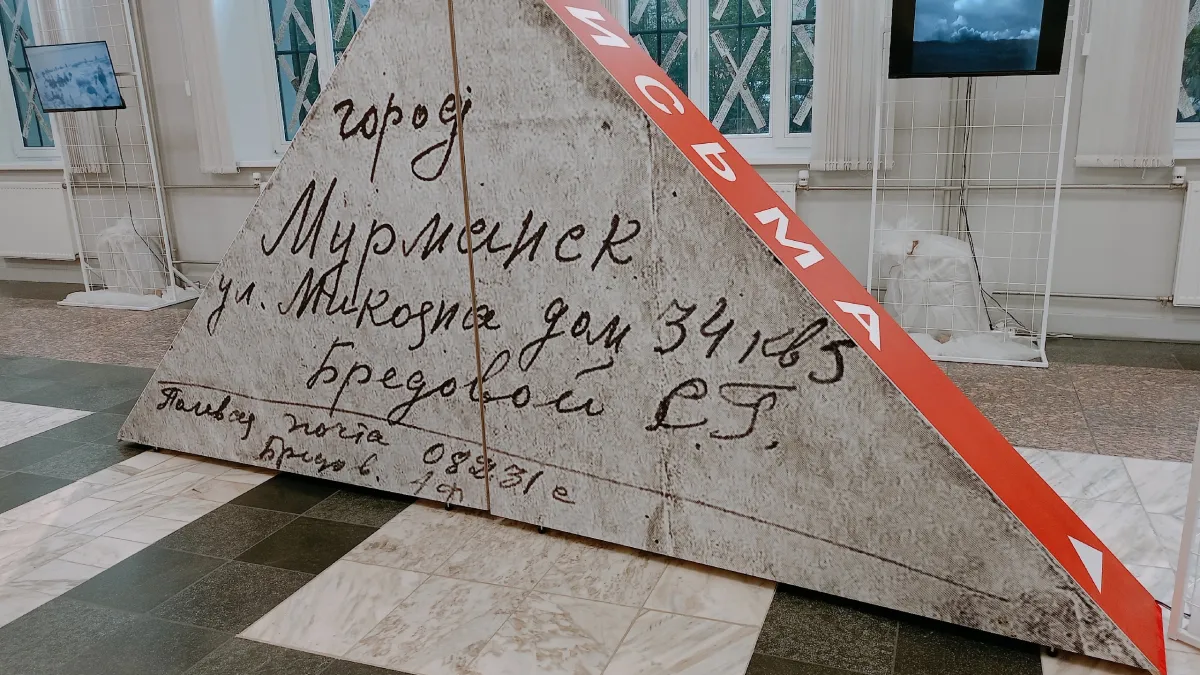 город
Мурманск
ул. Микояна дом 34 кв 5
Бредовой Е.Г.
Полевая почта 08231 е
Бредов.
ИСЬМА